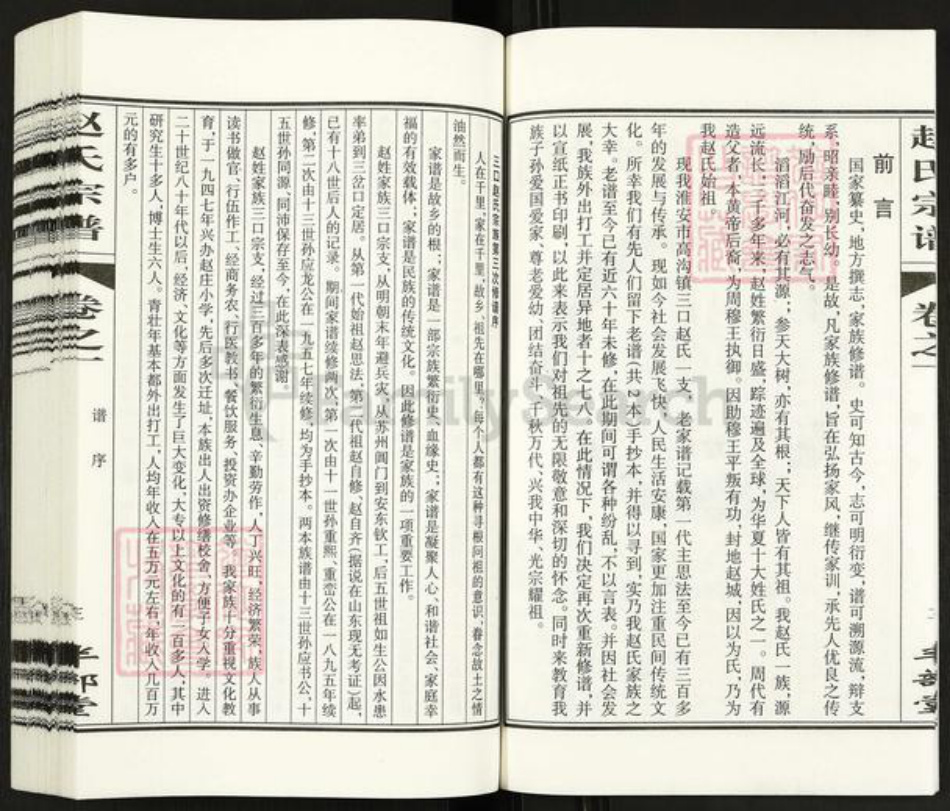 赵氏宗谱
卷之一
前言
国家纂史，地方撰志，家族修谱。史可知古今，志可明衍变，谱可溯源流，辩支
系，昭亲睦，别长幼。是故，凡家族修谱，旨在弘扬家风，继传家训，承先人优良之传
统，励后代奋发之志气。
滔滔江河，必有其源；参天大树，亦有其根；天下人皆有其祖。我赵氏一族，源
远流长，三千多年来，赵姓繁衍日盛，踪迹遍及全球，为华夏十大姓氏之一。周代有
造父者，本黄帝后裔，为周穆王执御。因助穆王平叛有功，封地赵城，因以为氏，乃为
我赵氏始祖
现我淮安市高沟镇三口赵氏一支，老家谱记载第一代主思法至今已有三百多
年的发展与传承。现如今社会发展飞快，人民生活安康，国家更加注重民间传统文
化。所幸我们有先人们留下老谱（共2本）手抄本，并得以寻到，实乃我赵氏家族之
大幸。老谱至今已有近六十年未修，在此期间可谓各种纷乱，不以言表。并因社会发
展，我族外出打工并定居异地者十之七八。在此情况下，我们决定再次重新修谱，并
以宣纸正书印刷，以此来表示我们对祖先的无限敬意和深切的怀念。同时来教育我
族子孙爱国爱家、尊老爱幼、团结奋斗，千秋万代、兴我中华、光宗耀祖。
三口赵氏宗族第三次修谱序
人在千里，家在千里，故乡、祖先在哪里？每个人都有这种寻根问祖的意识，眷念故土之情
油然而生。
家谱是故乡的根；家谱是一部宗族繁衍史、血缘史；家谱是凝聚人心、和谐社会、家庭幸
福的有效载体；家谱是民族的传统文化。因此修谱是家族的一项重要工作。
赵姓家族三口宗支，从明朝末年避兵灾，从苏州阊门到安东钦工，后五世祖如生公因水患
率弟到三岔口定居。从第一代始祖赵思法，第二代祖赵自修、赵自齐（据说在山东现无考证）起，
已有十八世后人的记录。期间家谱续修两次，第一次由十一世孙重熙、重峦公在一八九五年续
修，第二次由十三世孙应龙公在一九五七年续修，均为手抄本。两本族谱由十三世孙应书公、十
五世孙同源、同沛保存至今，在此深表感谢。
赵姓家族三口宗支，经过三百多年的繁衍生息，辛勤劳作，人丁兴旺，经济繁荣，族人从事
读书做官、行伍作工、经商务农、行医教书、餐饮服务、投资办企业等，我家族十分重视文化教
育，于一九四七年兴办赵庄小学，先后多次迁址，本族出人出资修缮校舍，方便子女入学。进入
二十世纪八十年代以后，经济、文化等方面发生了巨大变化，大专以上文化的有二百多人，其中
研究生十多人，博士生六人。青壮年基本都外出打工，人均年收入在五万元左右，年收入几百万
元的有多户。
赵氏宗谱
卷之一
谱序
三
半部堂
FamilySearch